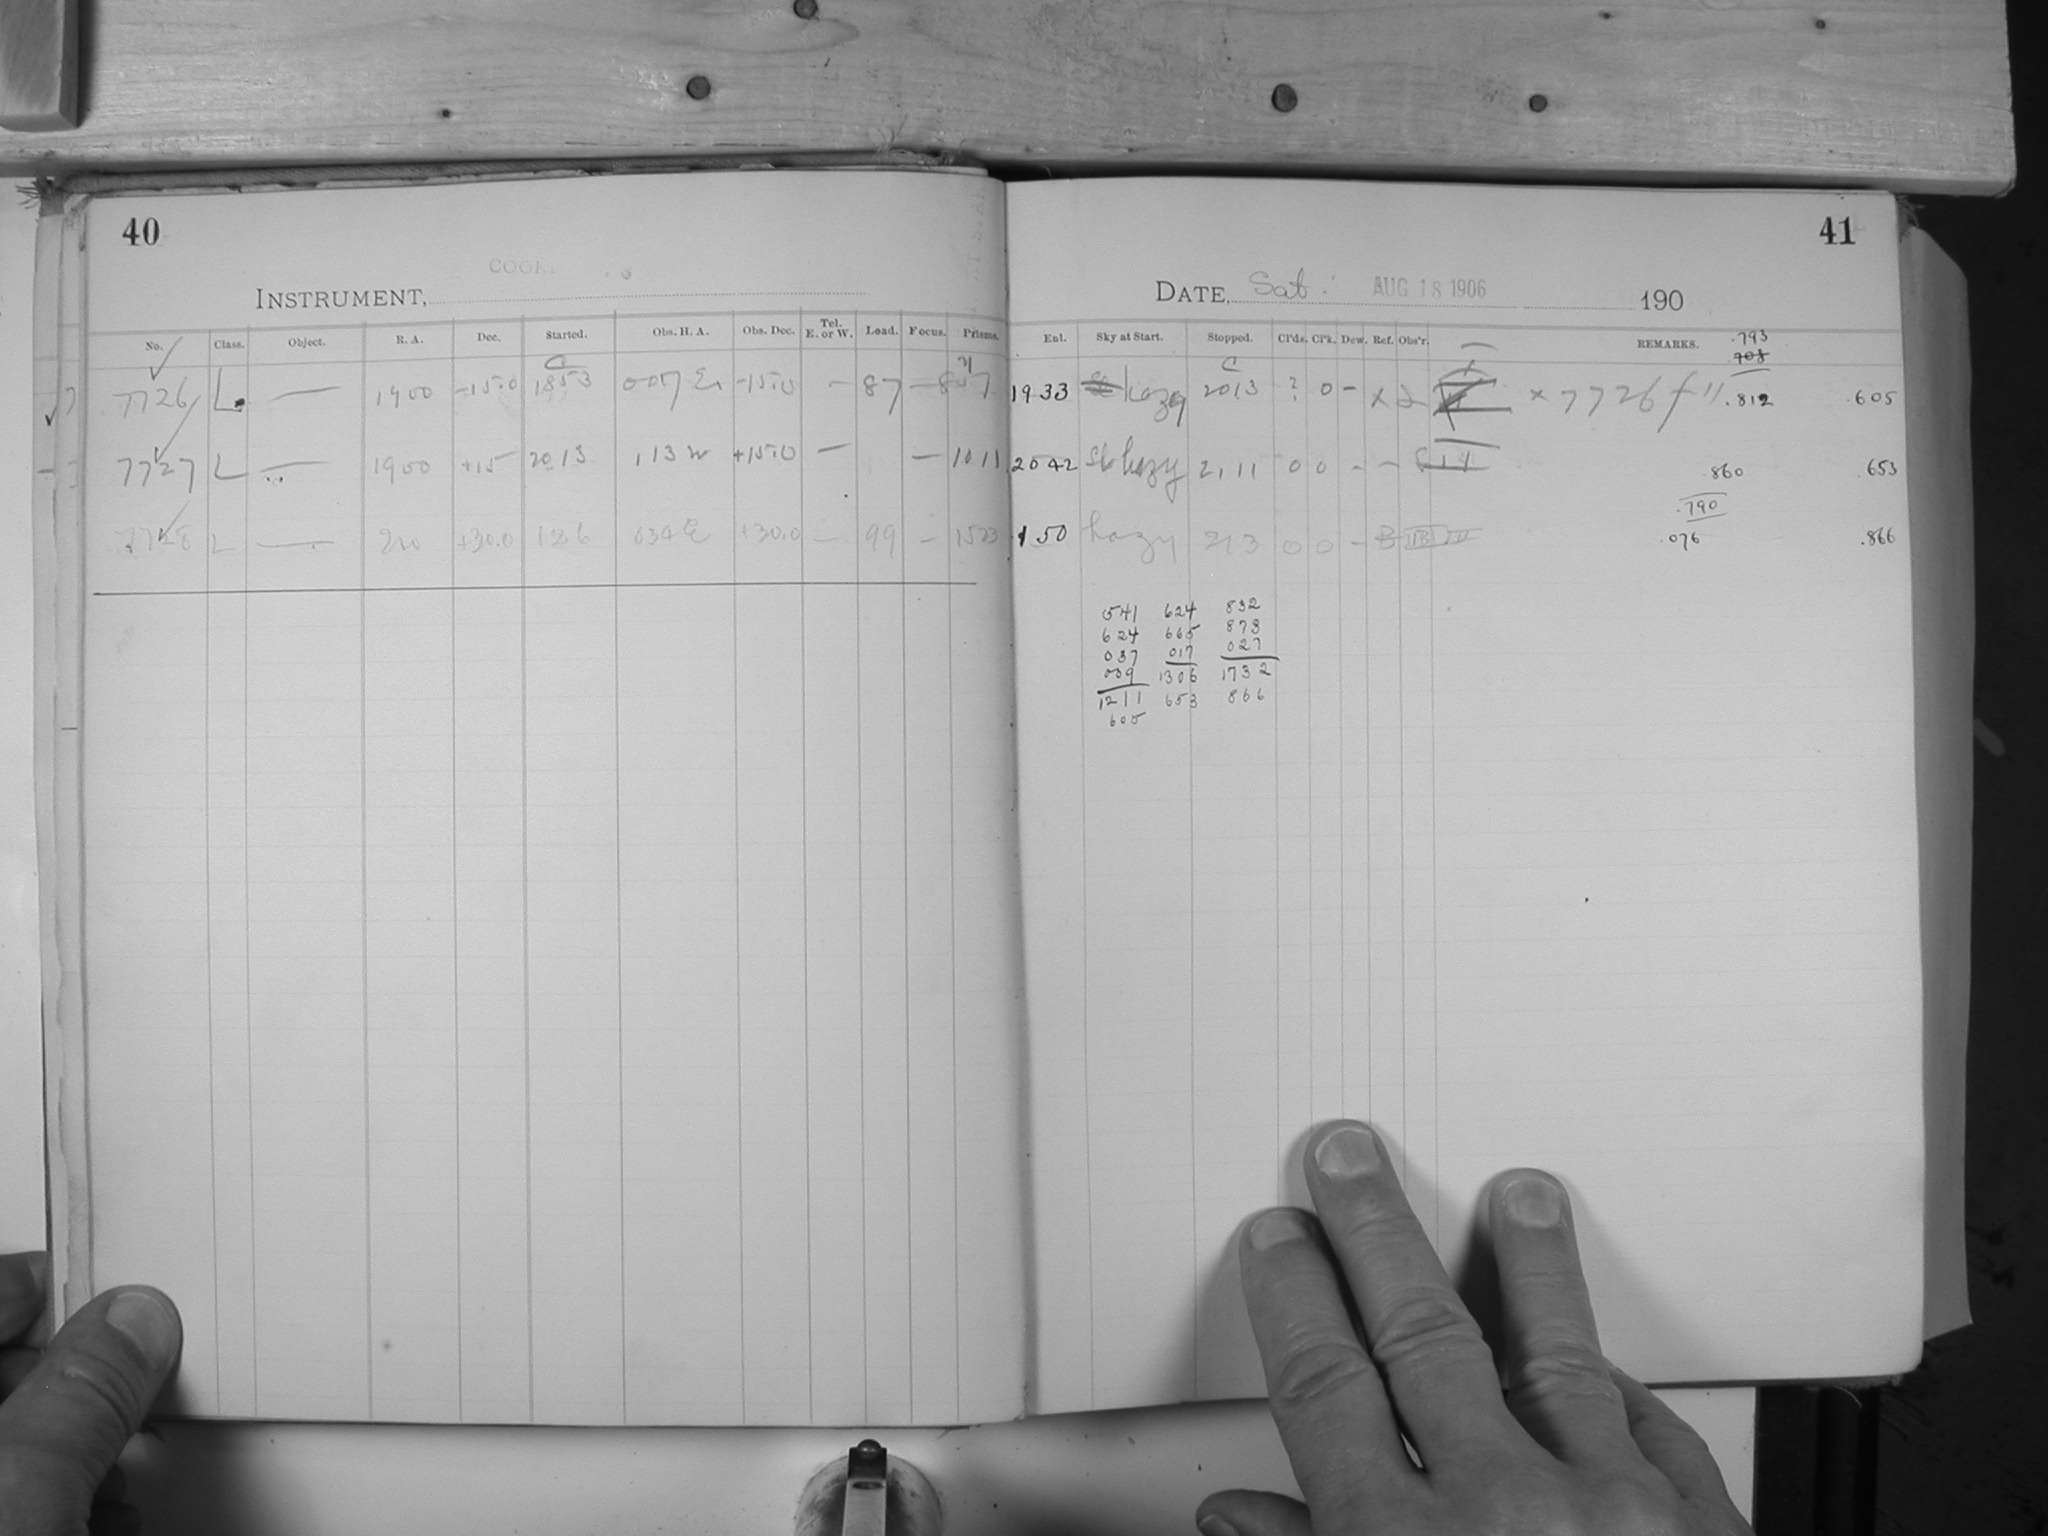 40
41
COOK.
INSTRUMENT,
DATE, Sat. AUG 18 1906 190
No. Class. Object. R. A. Dec. Started. Obs. H. A. Obs. Dec. Tel. E. or W. Load. Focus. Prisms. Enl. Sky at Start. Stopped. Cl'ds. Cl'k. Dew. Ref. Obs'r. REMARKS. .793
7726 L. — 1900 -15.0 1853 007 E -15.0 — 87 — 1933 hazy 2013 ? 0 - × 7726 f" .812 .605
7727 L — 1900 +15 2013 113 w +15.0 — — 1011 2042 hazy 2111 0 0 - - .860 .653
.790
7728 L — +30.0 126 034 E +30.0 — 99 — 1523 150 hazy 213 0 0 - .076 .866
541 624 832
624 665 873
037 017 027
039 1306 1732
1211 653 866
605